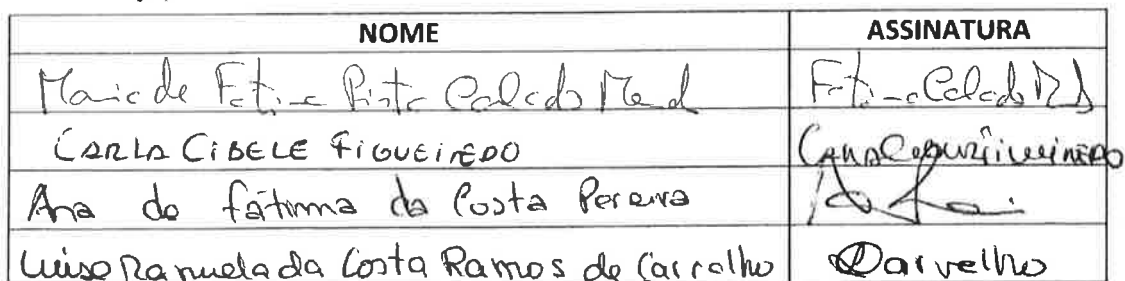 NOME ASSINATURA
Maria de Fatima Pinto Calado Mend Fatima Calado
CARLA CIBELE FIGUEIREDO
Ana de fátima da Costa Pereira
Luisa Manuela da Costa Ramos de Carvalho Carvalho